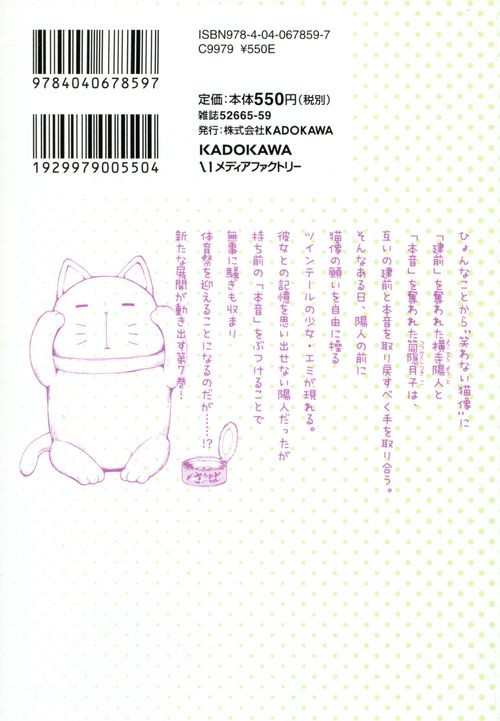 ISBN978-4-04-067859-7
C9979 ¥550E
9784040678597
定価:本体550円(税別)
雑誌52665-59
発行:株式会社KADOKAWA
KADOKAWA
メディアファクトリー
1929979005504
ひょんなことから“笑わない猫像”に
「建前」を奪われた横寺陽人と
「本音」を奪われた筒隠月子は、
互いの建前と本音を取り戻すべく手を取り合う。
そんなある日、陽人の前に
猫像の願いを自由に操る
ツインテールの少女・エミが現れる。
彼女との記憶を思い出せない陽人だったが
持ち前の「本音」をぶつけることで
無事に騒ぎも収まり
体育祭を迎えることになるのだが……!?
新たな展開が動き出す第7巻!
さば